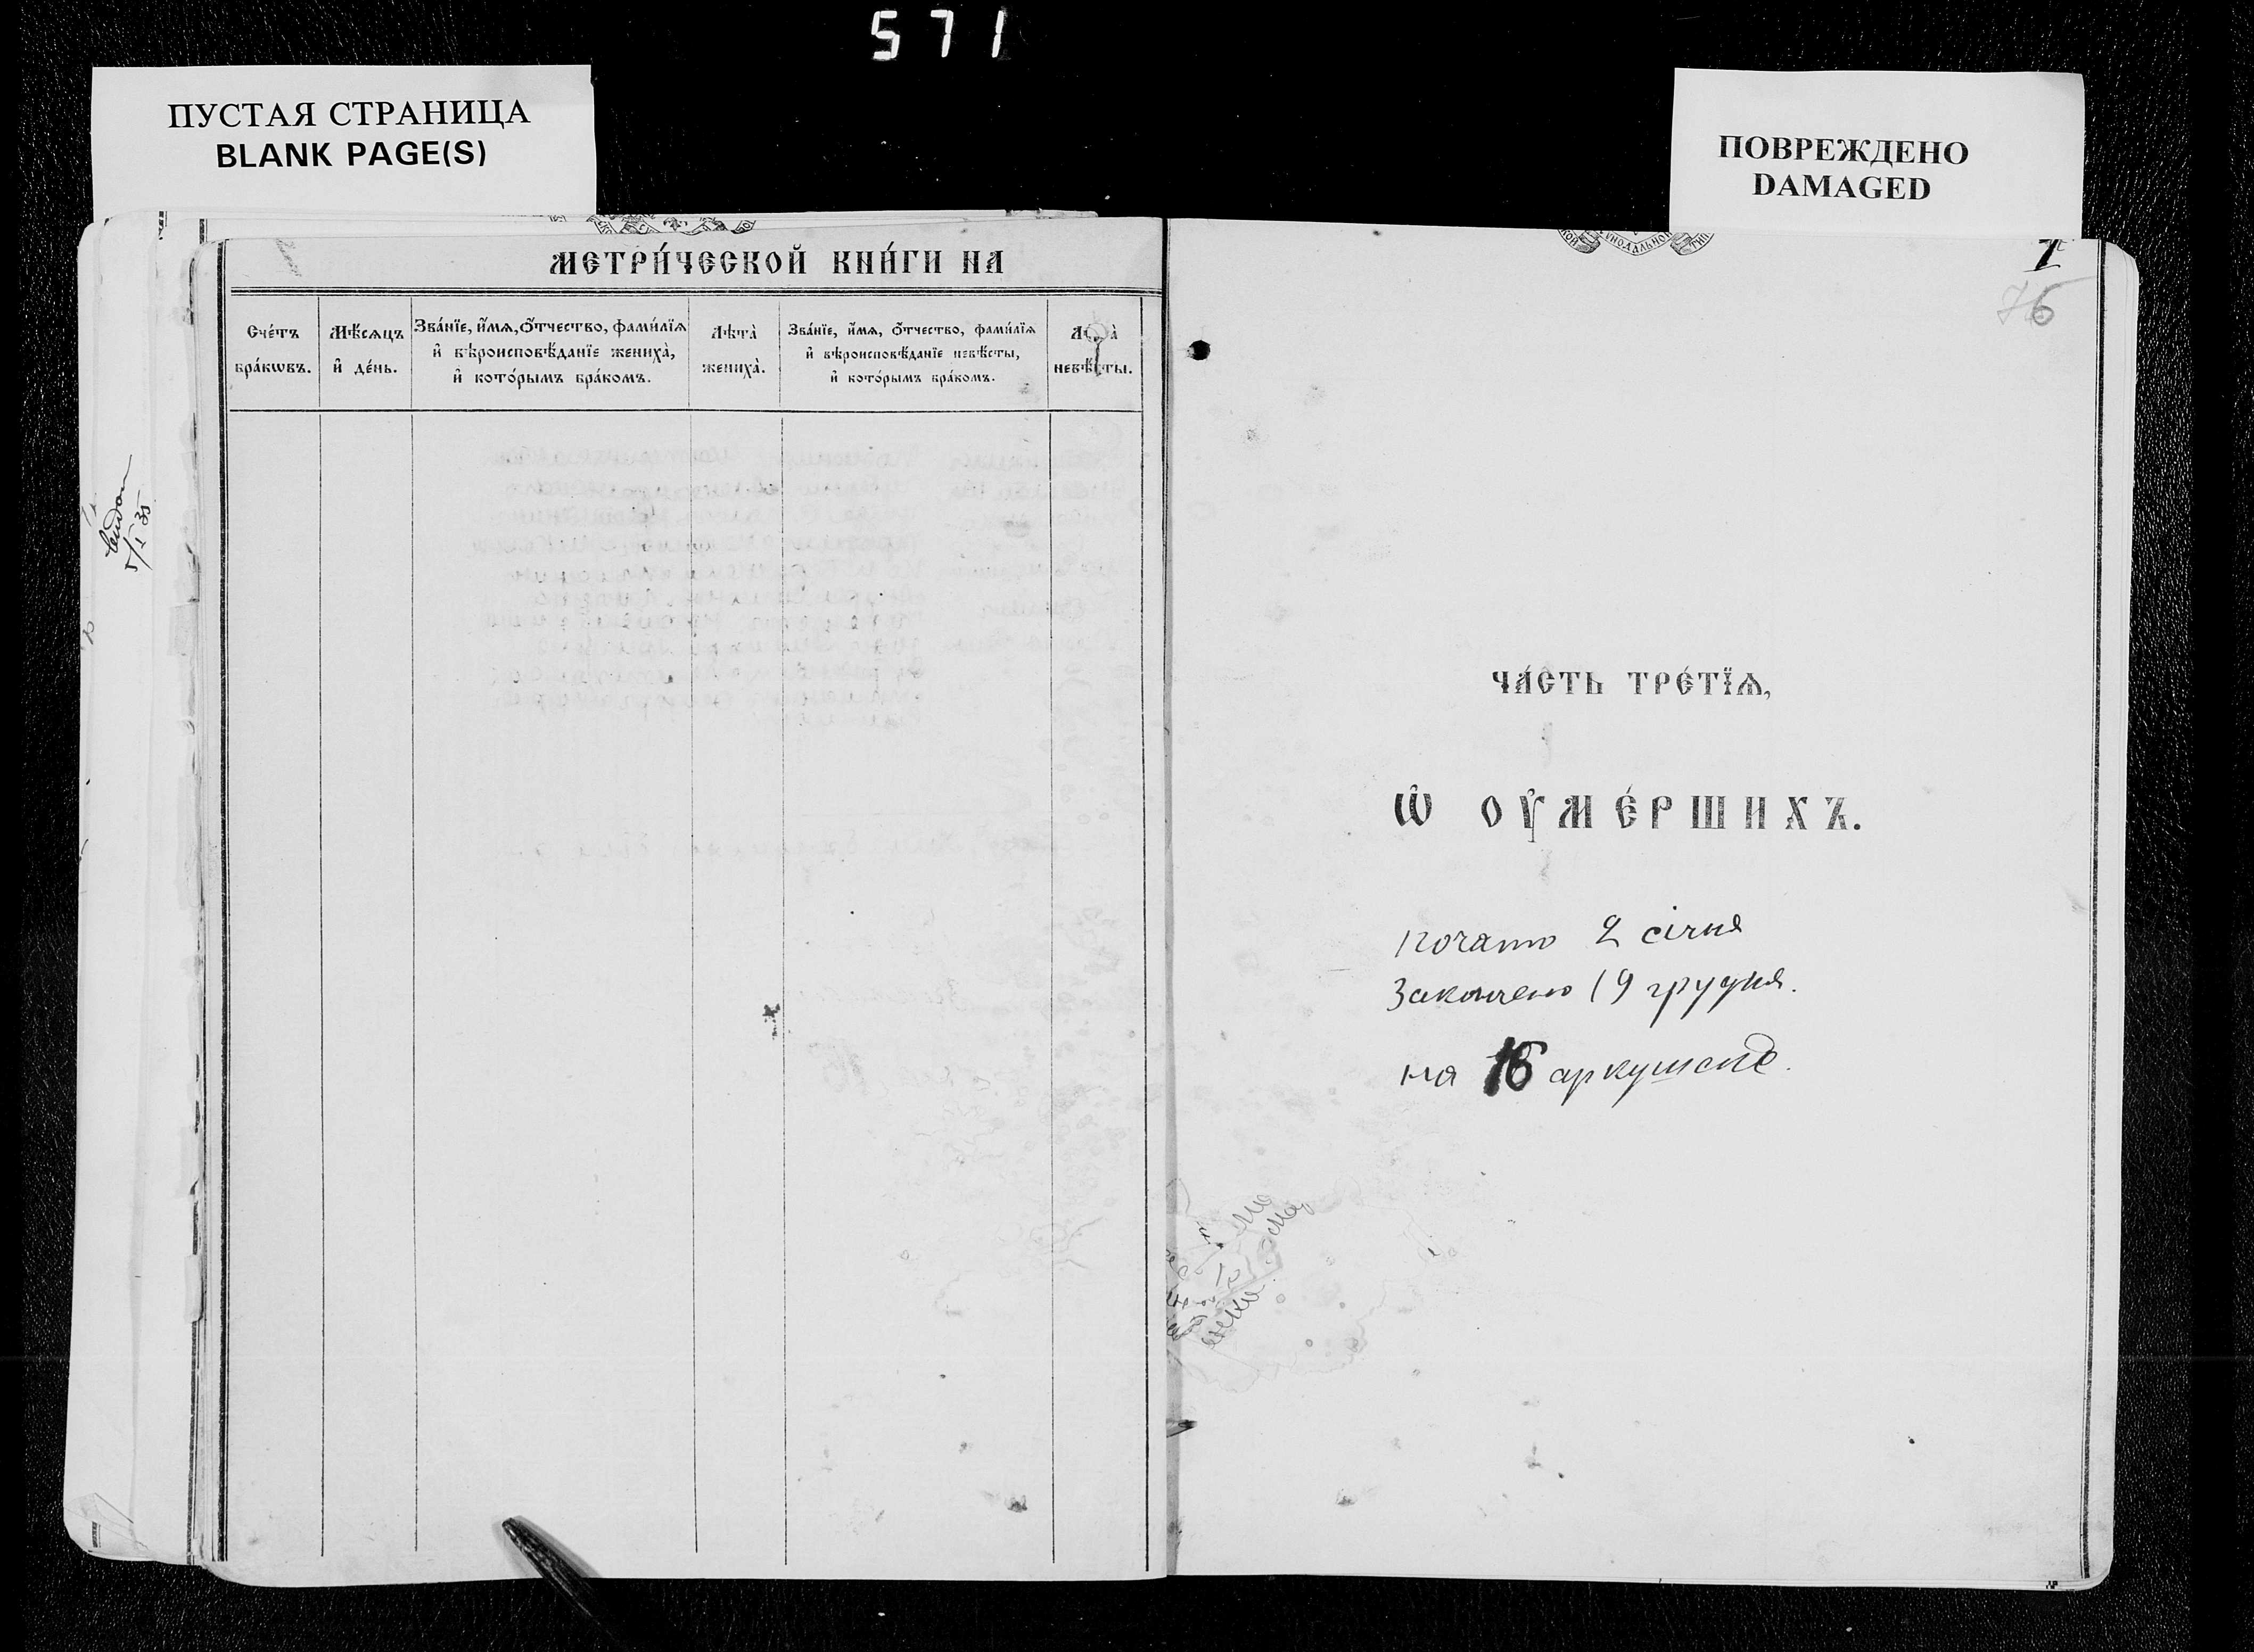 571
ПУСТАЯ СТРАНИЦА
BLANK PAGE(S)
ПОВРЕЖДЕНО
DAMAGED
МЕТРИ́ЧЕСКОЙ КНИ́ГИ НА
Сче́тъ бра́кωвъ.
Мѣ́сяцъ и҆ де́нь.
Зва́нїе, и҆́мя, ѻ҆́тчество, фами́лїя
и҆ вѣроисповѣ́данїе жениха̀,
и҆ кото́рымъ бра́комъ.
Лѣта̀ жениха̀.
Зва́нїе, и҆́мя, ѻ҆́тчество, фами́лїя
и҆ вѣроисповѣ́данїе невѣ́сты,
и҆ кото́рымъ бра́комъ.
Лѣта̀ невѣ́сты.
5/I 35
1
76
ЧА́СТЬ ТРЕ́ТЇѦ,
Ѡ҆ ОУ҆МЕ́РШИХЪ.
Почато 2 січня
Закончено 19 грудня.
на 16 аркушах